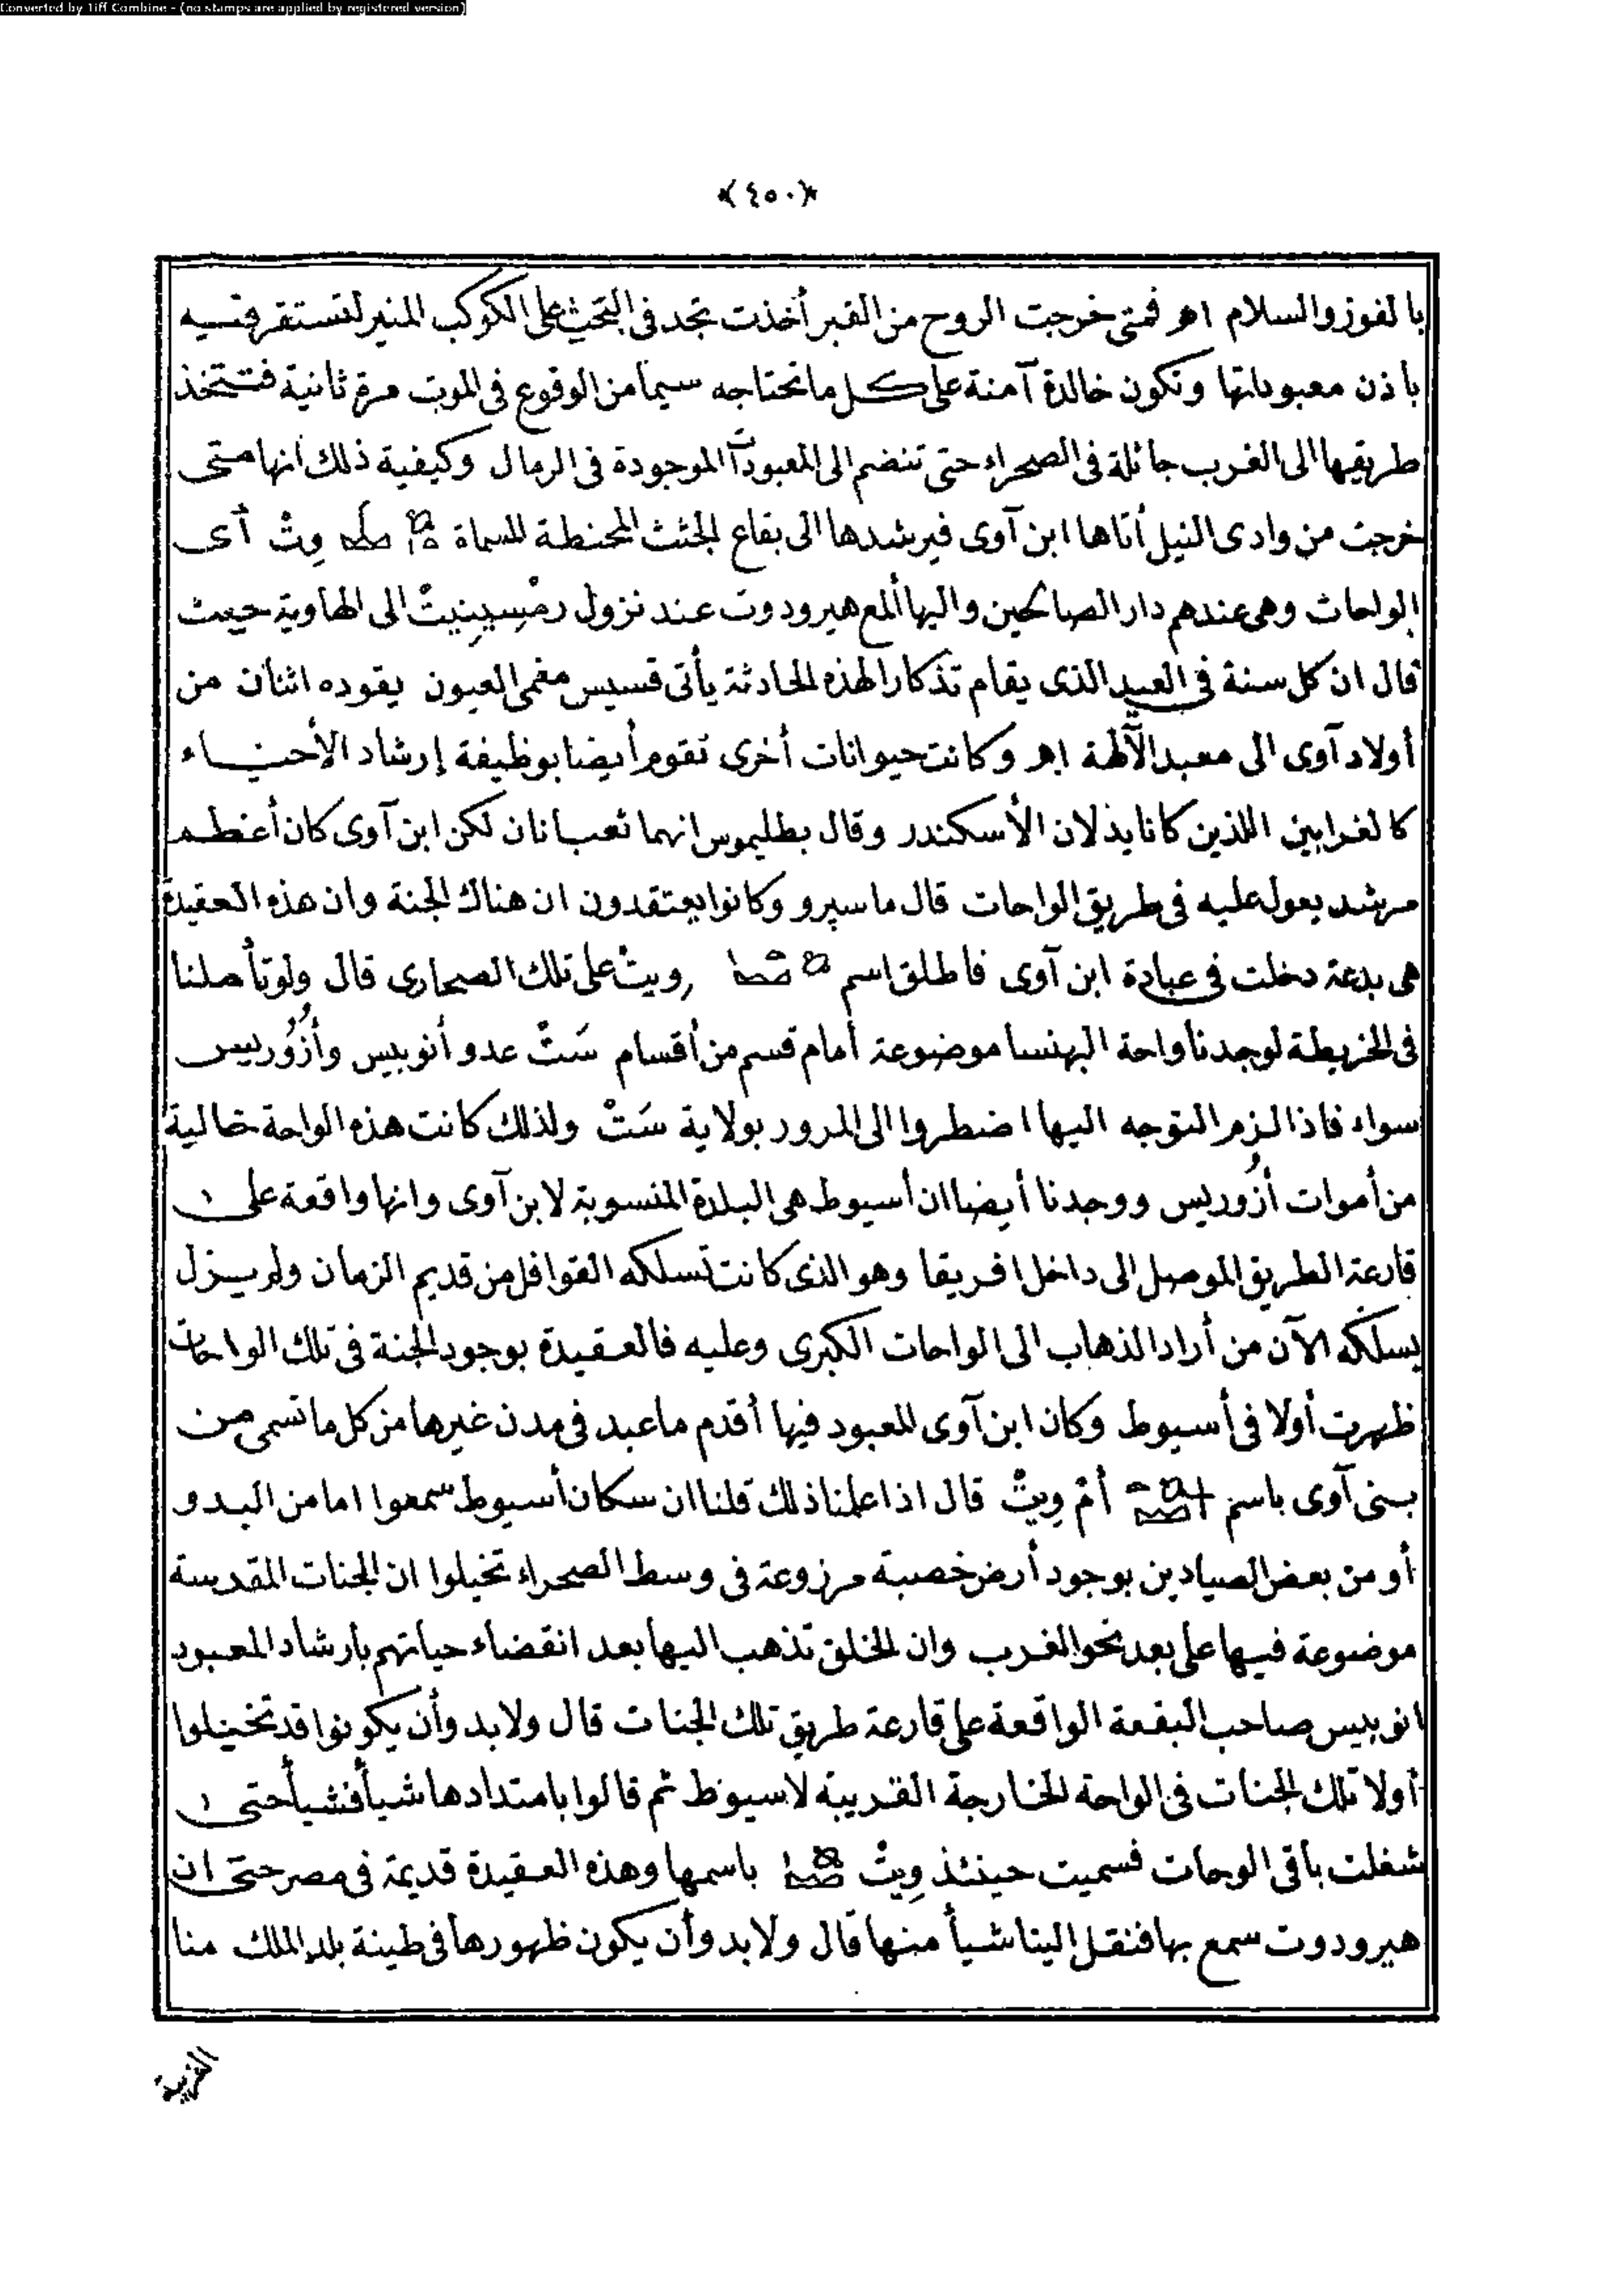 Converted by Tiff Combine - (no stamps are applied by registered version)
﴿٤٥٠﴾
بالفوز والسلام اهـ فمتى خرجت الروح من القبر أخذت تجد فى البحث على الكوكب المنير لتستقر فيه
باذن معبوداتها وتكون خالدة آمنة على كل ما تحتاجه سيما من الوقوع فى الموت مرة ثانية فتتخذ
طريقها الى الغرب جائلة فى الصحراء حتى تنضم الى المعبودات الموجودة فى الرمال وكيفية ذلك أنها متى
خرجت من وادى النيل أتاها ابن آوى فيرشدها الى بقاع الجثث المحنطة المسماة وِيتْ أى
الواحات وهى عندهم دار الصالحين واليها ألمع هيرودوت عند نزول رمْسِينِيتْ الى الهاوية حيث
قال ان كل سنة فى العيد الذى يقام تذكارا لهذه الحادثة يأتى قسيس مغمى العيون يقوده اثنان من
أولاد آوى الى معبد الآلهة اهـ وكانت حيوانات أخرى تقوم أيضا بوظيفة إرشاد الأحياء
كالغرابين اللذين كانا يدلان الأسكندر وقال بطليموس انهما ثعبانان لكن ابن آوى كان أعظم
مرشد يعول عليه فى طريق الواحات قال ماسپرو وكانوا يعتقدون ان هناك الجنة وان هذه العقيدة
هى بدعة دخلت فى عبادة ابن آوى فاطلق اسم ويتْ على تلك الصحارى قال ولو تأملنا
فى الخريطة لوجدنا واحة البهنسا موضوعة أمام قسم من أقسام سَتْ عدو أنوبيس وأزُوريس
سواء فاذا لزم التوجه اليها اضطروا الى المرور بولاية سَتْ ولذلك كانت هذه الواحة خالية
من أموات أزُوريس ووجدنا أيضا ان أسيوط هى البلدة المنسوبة لابن آوى وانها واقعة على
قارعة الطريق الموصل الى داخل افريقا وهو الذى كانت تسلكه القوافل من قديم الزمان ولم يزل
يسلكه الآن من أراد الذهاب الى الواحات الكبرى وعليه فالعقيدة بوجود الجنة فى تلك الواحات
ظهرت أولا فى أسيوط وكان ابن آوى المعبود فيها أقدم ما عبد فى مدن غيرها من كل ما تسمى من
بنى آوى باسم أمْ وِيتْ قال اذا علمنا ذلك قلنا ان سكان أسيوط سمعوا اما من البدو
أو من بعض الصيادين بوجود أرض خصبة مزروعة فى وسط الصحراء تخيلوا ان الجنات المقدسة
موضوعة فيها على بعد نحو الغرب وان الخلق تذهب اليها بعد انقضاء حياتهم بارشاد المعبود
انوبيس صاحب البقعة الواقعة على قارعة طريق تلك الجنات قال ولابد وأن يكونوا قد تخيلوا
أولا تلك الجنات فى الواحة الخارجة القريبة لاسيوط ثم قالوا بامتدادها شيأ فشيأ حتى
شغلت باقى الوحات فسميت حينئذ وِيتْ باسمها وهذه العقيدة قديمة فى مصر حتى ان
هيرودوت سمع بها فنقل الينا شيأ منها قال ولابد وأن يكون ظهورها فى طينة بلد الملك منا